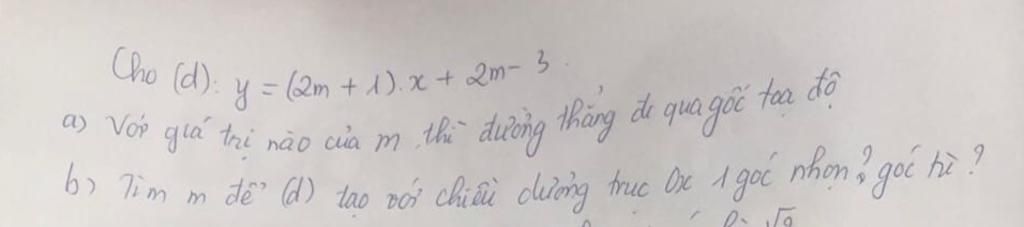 Cho (d): y = (2m + 1).x + 2m - 3.
a) Với giá trị nào của m thì đường thẳng đi qua gốc tọa độ
b) Tìm m để (d) tạo với chiều dương trục Ox 1 góc nhọn? góc tù?